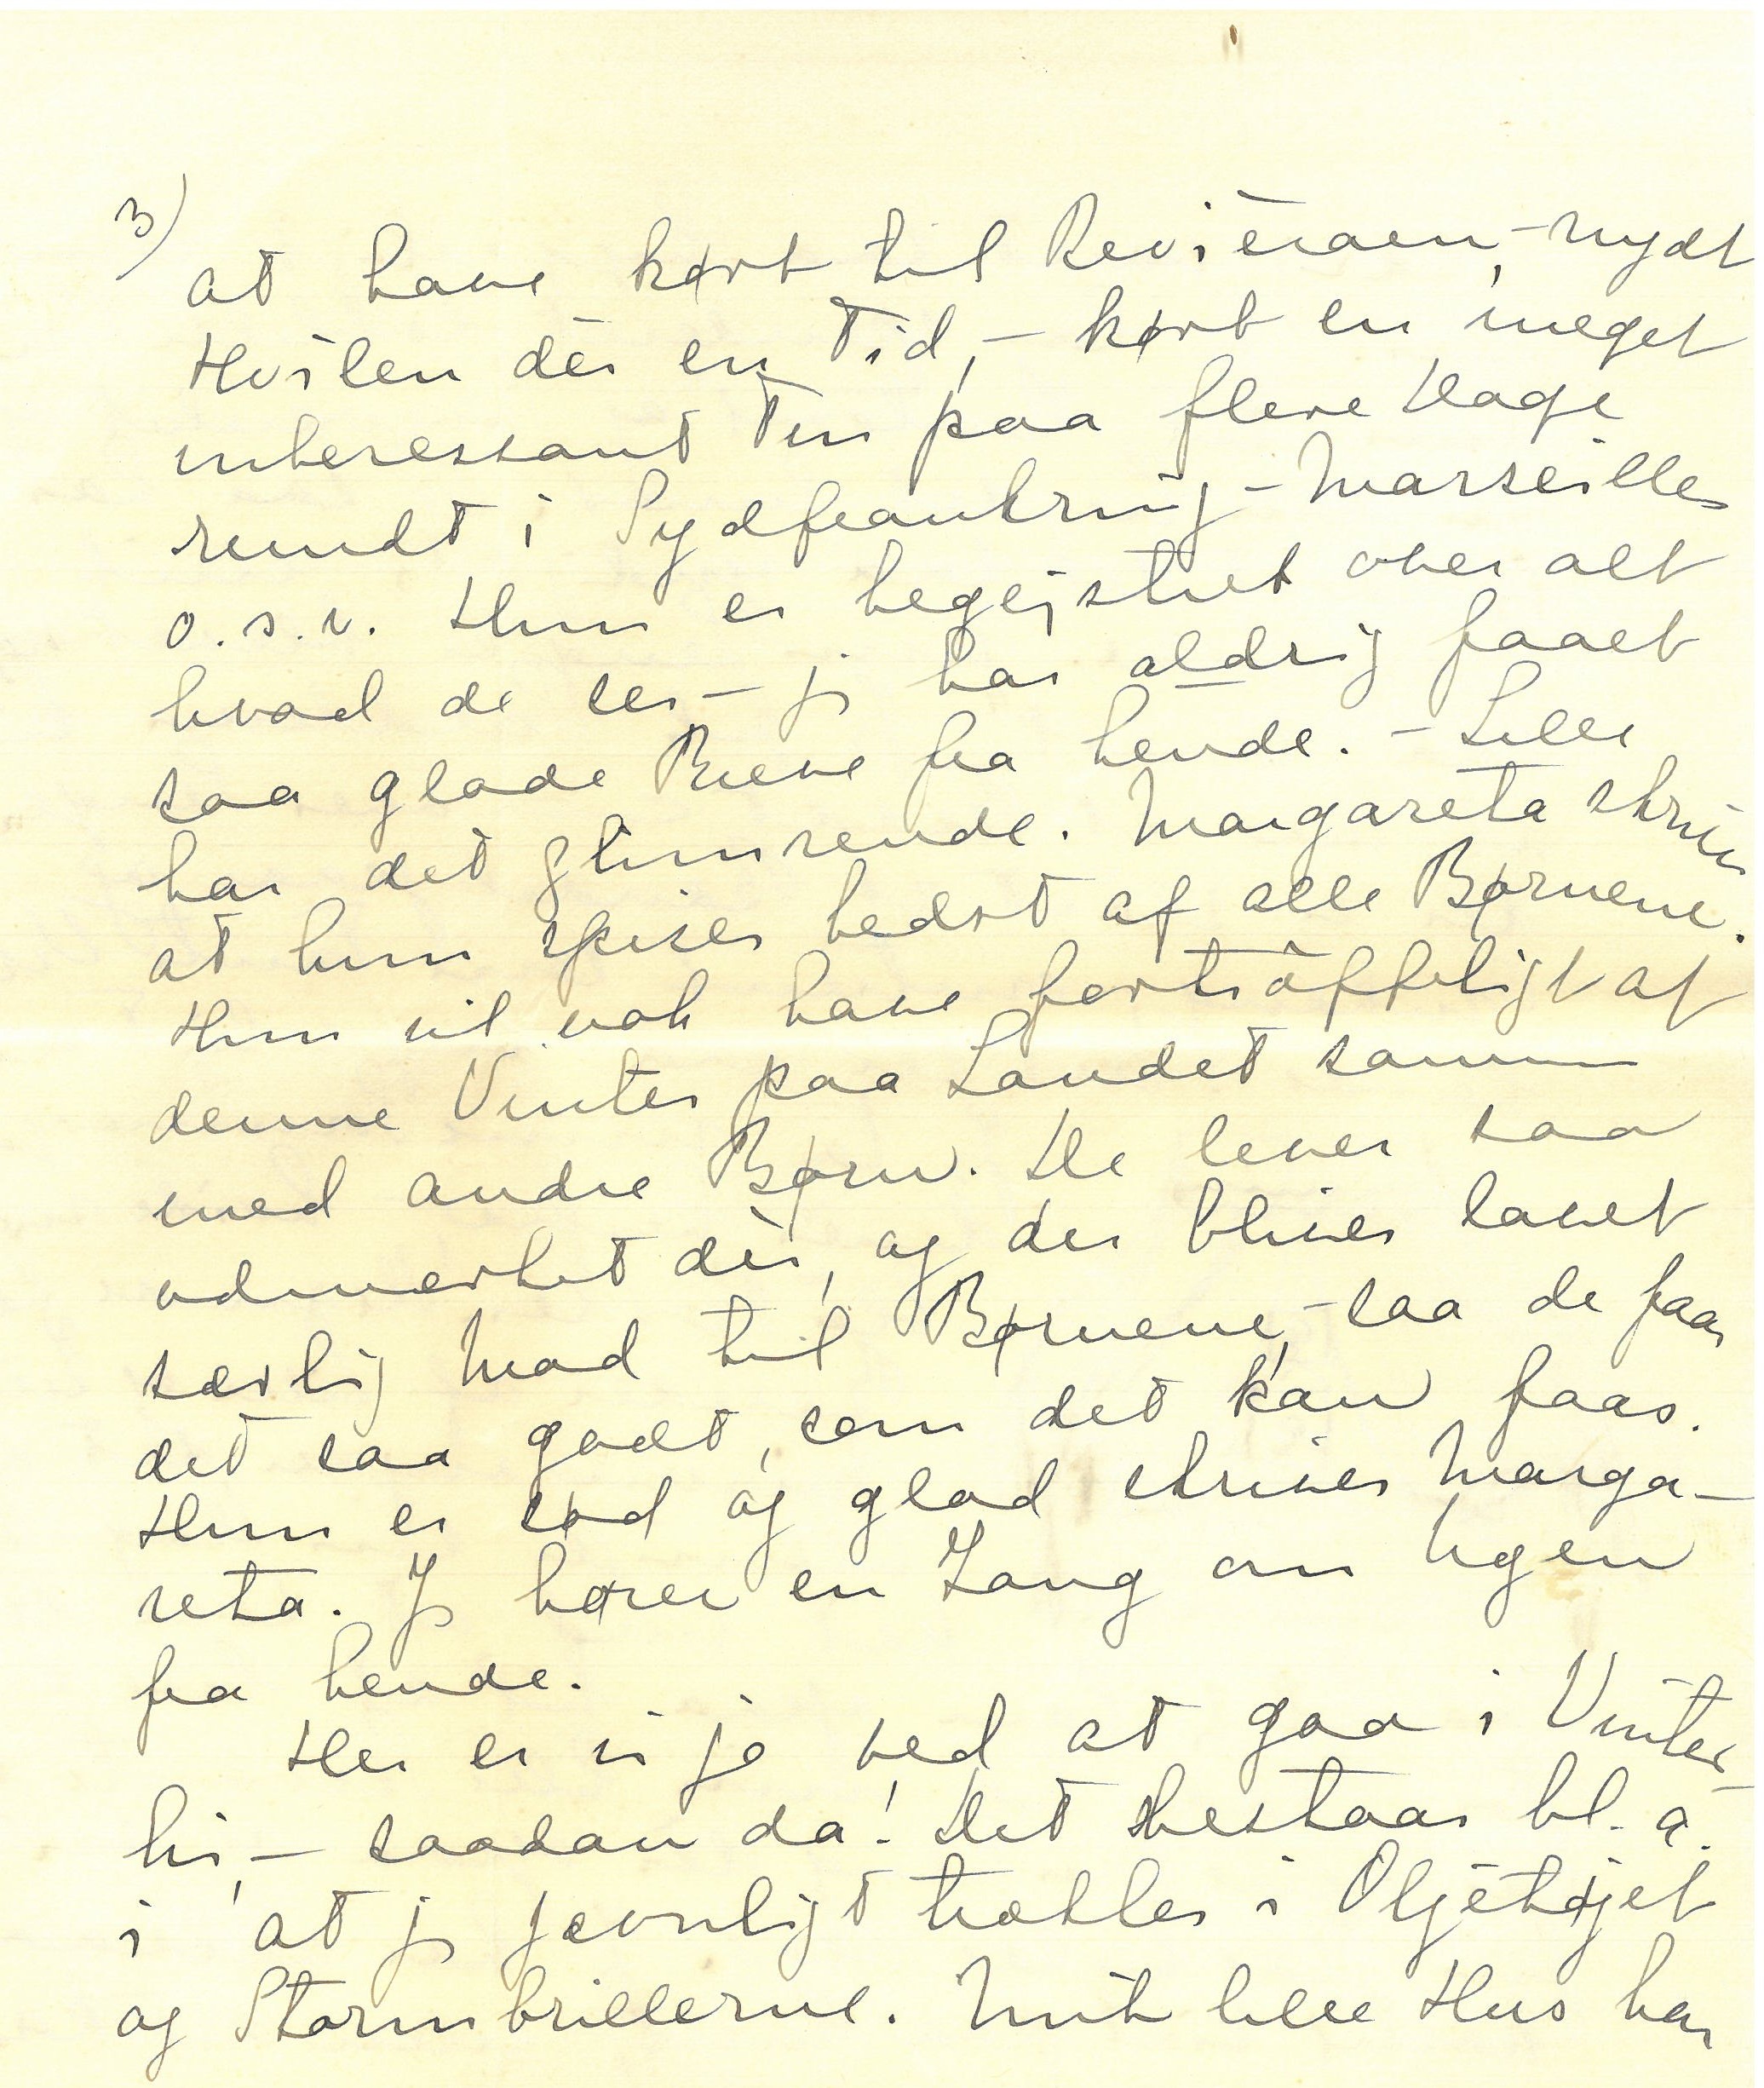 3)
at have kørt til Revièraen, - nydt
Hvilen dèr en Tid, - kørt en meget
interessant Tur paa flere Dage
rundt i Sydfrankrig - Marseilles
o.s.v. Hun er begejstret over alt
hvad de ser - jeg har aldrig faaet
saa glade Breve fra hende. - Lille
har det glimrende. Margareta skriver
at hun spiser bedst af alle Børnene.
Hun vil nok have fortræffeligt af
denne Vinter paa Landet sammen
med andre Børn. De lever saa
udmærket dèr, og der bliver lavet
særlig Mad til Børnene, - saa de faar
det saa godt, som det kan faas.
Hun er sød og glad skriver Marga-
reta. Jeg hører en Gang om Ugen
fra hende.
Her er vi jo ved at gaa i Vinter-
hi, - saadan da! Det bestaar bl. a.
i at jeg jævnligt trækker i Oljetøjet
og Stormbrillerne. Mit lille Hus har